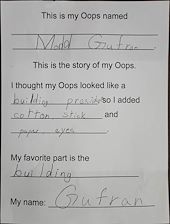 This is my Oops named
Mohd Gufran
This is the story of my Oops.
I thought my Oops looked like a
building so I added
cotton stick and
paper, eyes
My favorite part is the
building
My name: Gufran